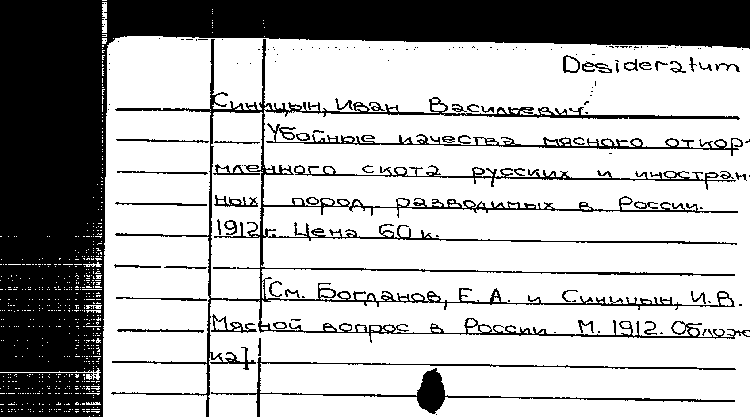 Desideratum
Синицын, Иван Васильевич.
Убойные качества мясного откор-
мленного скота русских и иностран-
ных пород, разводимых в России.
1912 г. Цена 60 к.
[См. Богданов, Е. А. и Синицын, И. В.
Мясной вопрос в России. М. 1912. Облож-
ка].